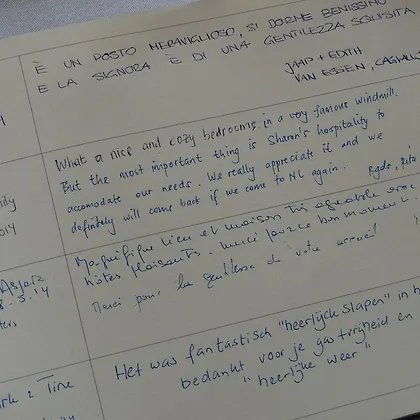 È UN POSTO MERAVIGLIOSO, SI DORME BENISSIMO
E LA SIGNORA È DI UNA GENTILEZZA SQUISITA
JAAP + EDITH
VAN ESSEN,
What a nice and cozy bedrooms in a very famous windmill.
But the most important thing is Sharon's hospitality to
ily
accomodate our needs. We really appreciate it and we
014
definitely will come back if we come to NL again. Rgds,
Magnifique lieu et maison très agréable avec
hôtes plaisants. merci pour ce bon moment.
5.14
Merci pour la gentillesse de votre accueil
Het was fantastisch "heerlijck slapen" in h
bedankt voor je gastvrijheid en
"heerlijke weer"